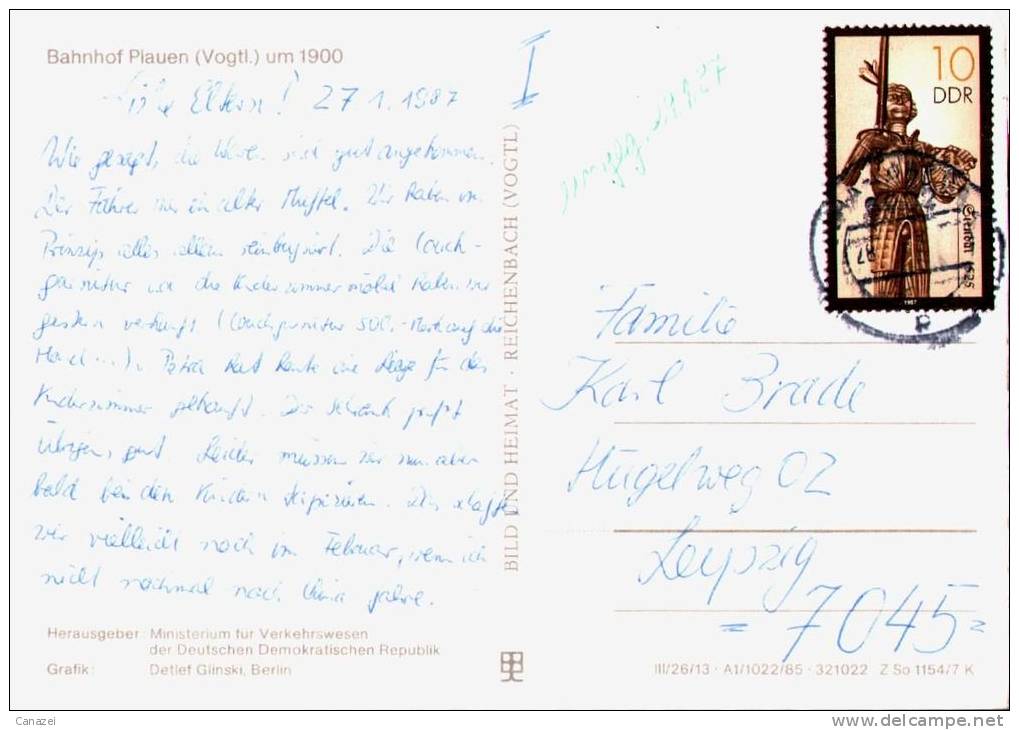 Bahnhof Plauen (Vogtl.) um 1900
I
Liebe Eltern! 27 1. 1987
Wie gesagt, die Waren sind gut angekommen.
Der Fahrer war ein alter Muffel. Wir haben im
Prinzip alles allein reinbugsiert. Die Couch-
garnitur u. die Kinderzimmermöbel haben wir
gestern verkauft (Couchgarnitur 500,- Mark auf die
Hand ...). Petra hat heute eine Liege für das
Kinderzimmer gekauft. Der Schrank paßt
übrigens gut. Leider müssen wir nun aber
bald bei den Kindern tapezieren. Das schaffen
wir vielleicht noch im Februar, wenn ich
nicht nochmal nach fahre.
Herausgeber: Ministerium für Verkehrswesen
der Deutschen Demokratischen Republik
Grafik: Detlef Glinski, Berlin
BILD UND HEIMAT · REICHENBACH (VOGTL)
10
DDR
1987
Familie
Karl Brade
Hügelweg 02
Leipzig
= 7045 =
III/26/13 · A1/1022/85 · 321022 Z So 1154/7 K
Canazei
http://www.delcampe.net